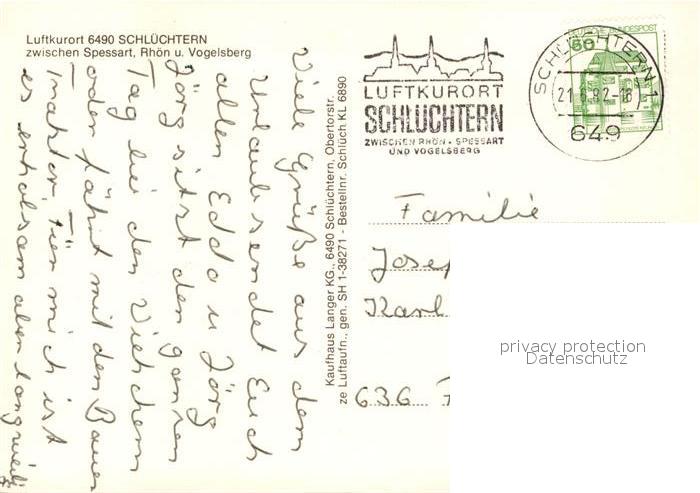 Luftkurort 6490 SCHLÜCHTERN
zwischen Spessart, Rhön u. Vogelsberg
Viele Grüße aus dem
Urlaub sendet Euch
allen Edda u Jörg
Jörg sitzt den ganzen
Tag bei den Viehchern
oder fährt mit dem Bauer
Traktor, Für mich ist
es erholsam aber langweilig
Kaufhaus Langer KG., 6490 Schlüchtern, Obertorstr.
ze Luftaufn., gen. SH 1-38271 - Bestellnr. Schlüch KL 6890
LUFTKURORT
SCHLÜCHTERN
ZWISCHEN RHÖN · SPESSART
UND VOGELSBERG
DEUTSCHE BUNDESPOST
SCHLÜCHTERN 1
21.6.82-18
649
Familie
Josef
Karl
636 F
privacy protection
Datenschutz